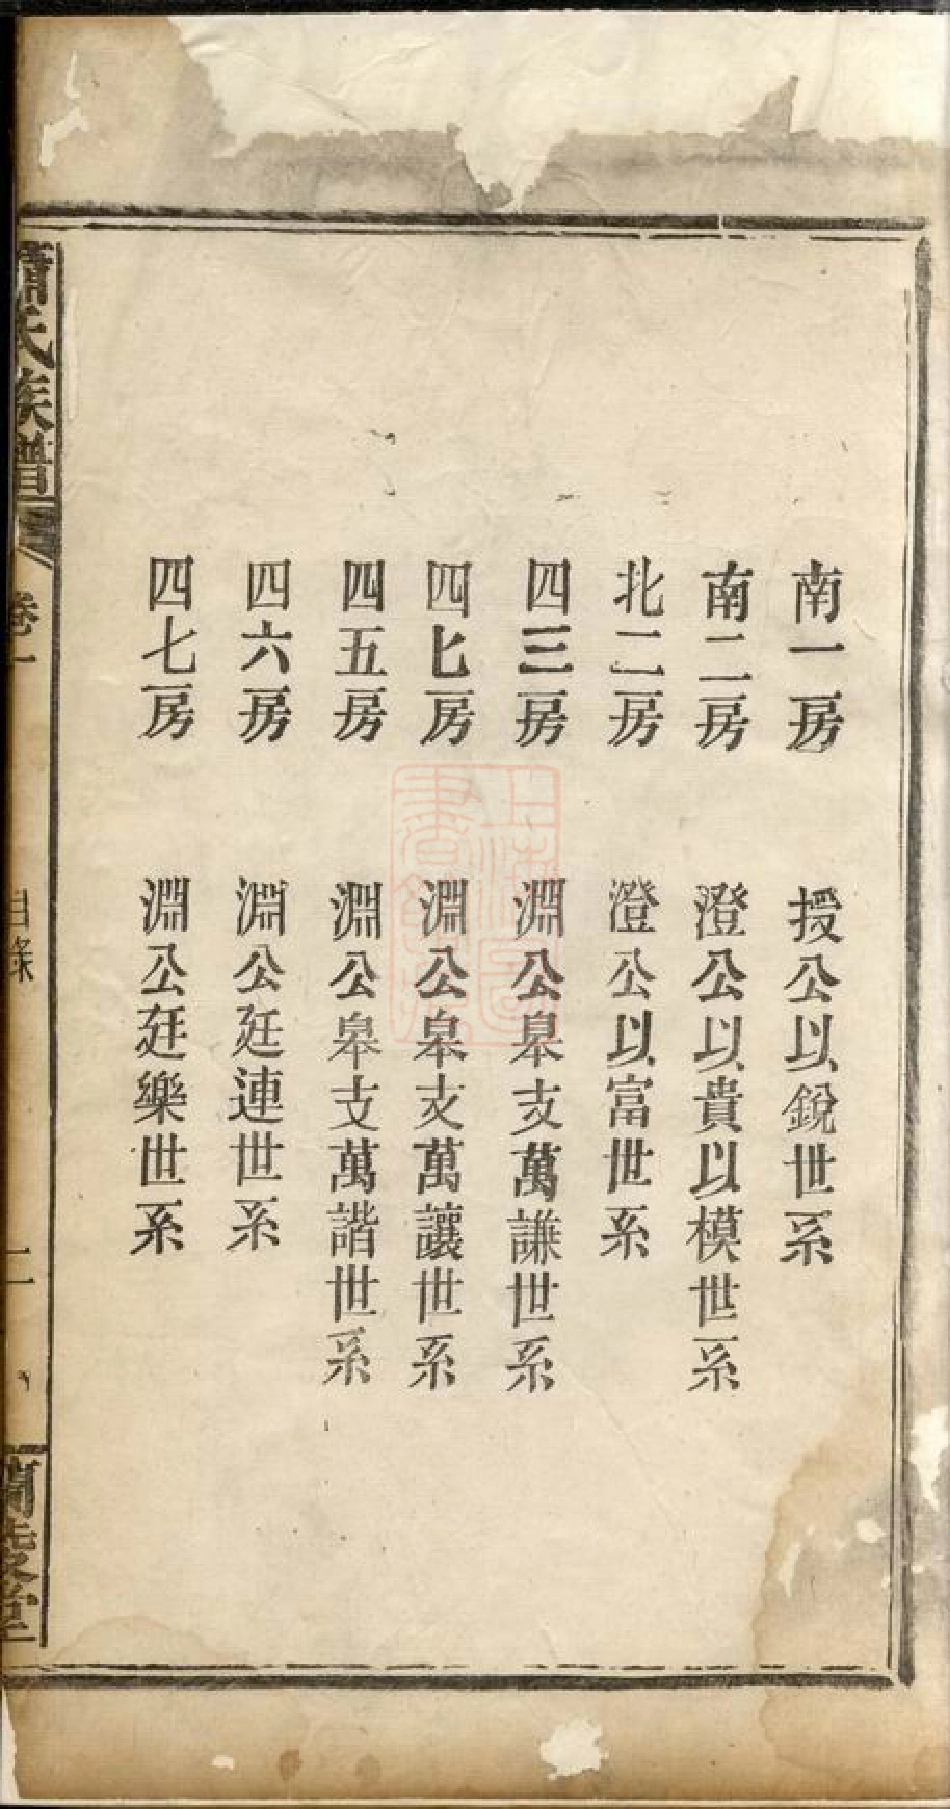 南一房 授公以銳世系
南二房 澄公以貴以模世系
北二房 澄公以富世系
四三房 淵公皋支萬謙世系
四匕房 淵公皋支萬讓世系
四五房 淵公皋支萬諧世系
四六房 淵公廷連世系
四七房 淵公廷樂世系
氏族譜 卷一 目錄 二 堂
上海圖書館藏